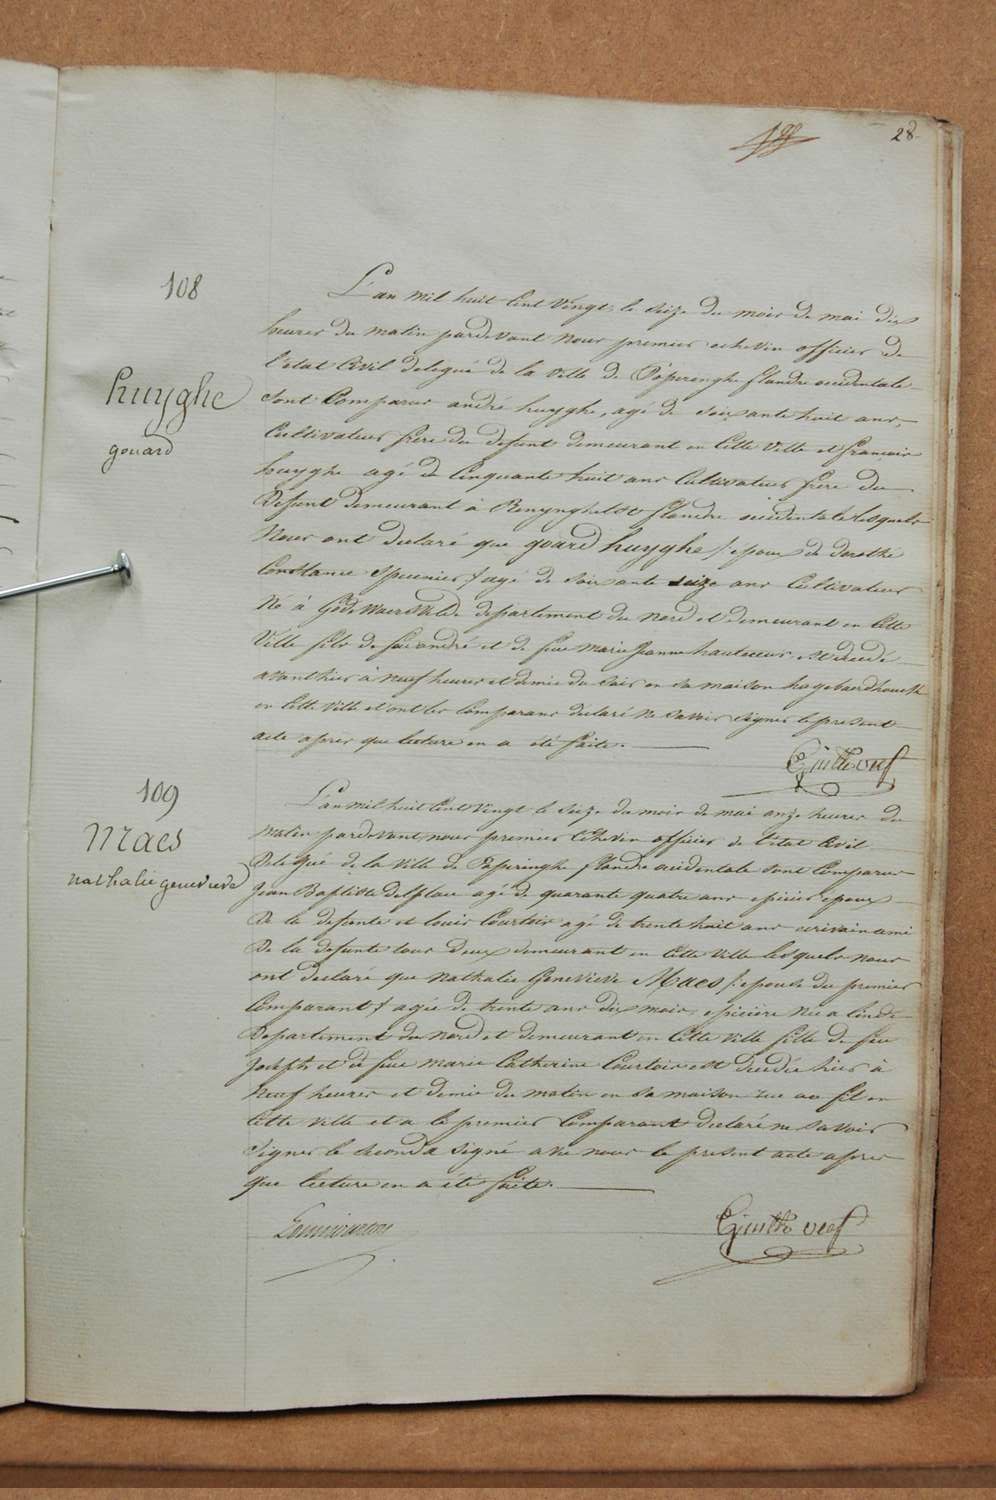 28
108
huyghe
gouard
L'an mil huit Cent Vingt, le seize du mois de mai dix
heures du matin pardevant nous premier echevin officier de
l'etat Civil delegué de la Ville de Poperinghe flandre occidentale
sont Comparus andré huyghe, agé de soixante huit ans,
Cultivateur frere du defunt demeurant en Cette Ville et francois
huyghe agé de Cinquante huit ans Cultivateur frere du
Defunt demeurant à Renynghelst flandre occidentale lesquels
Nous ont declaré que goard huyghe / époux de dorothé
Constance Speunier / agé de soixante seize ans Cultivateur
Né à Godewaersvelde departement du Nord et demeurant en Cette
Ville fils de feu andré et de feue marie Jeanne hautecoeur, est decedé
avant hier à neuf heures et demie du soir en sa maison
en Cette Ville et ont les Comparans declaré ne savoir signer le present
acte apres que lecture en a été faite.
109
Maes
nathalie genevieve
L'an mil huit Cent Vingt le seize du mois de mai onze heures du
matin pardevant nous premier echevin officier de l'etat Civil
delegué de la Ville de Poperinghe flandre occidentale sont Comparus
Jean Baptiste Delplace agé de quarante quatre ans epicier epoux
De la defunte et louis Courtois agé de trente huit ans ecrivain ami
De la defunte tous deux demeurant en Cette Ville lesquels nous
ont declaré que Nathalie Genevieve Maes / epouse du premier
Comparant / agée de trente ans dix mois, epiciere née a
Departement du nord et demeurant en Cette Ville fille de feu
Joseph et de feue Marie Catherine Courtois est decedée hier à
Neuf heures et demie du matin en sa maison rue au fil en
Cette Ville et a le premier Comparant declaré ne savoir
signer le second a signé avec nous le present acte apres
que lecture en a été faite.